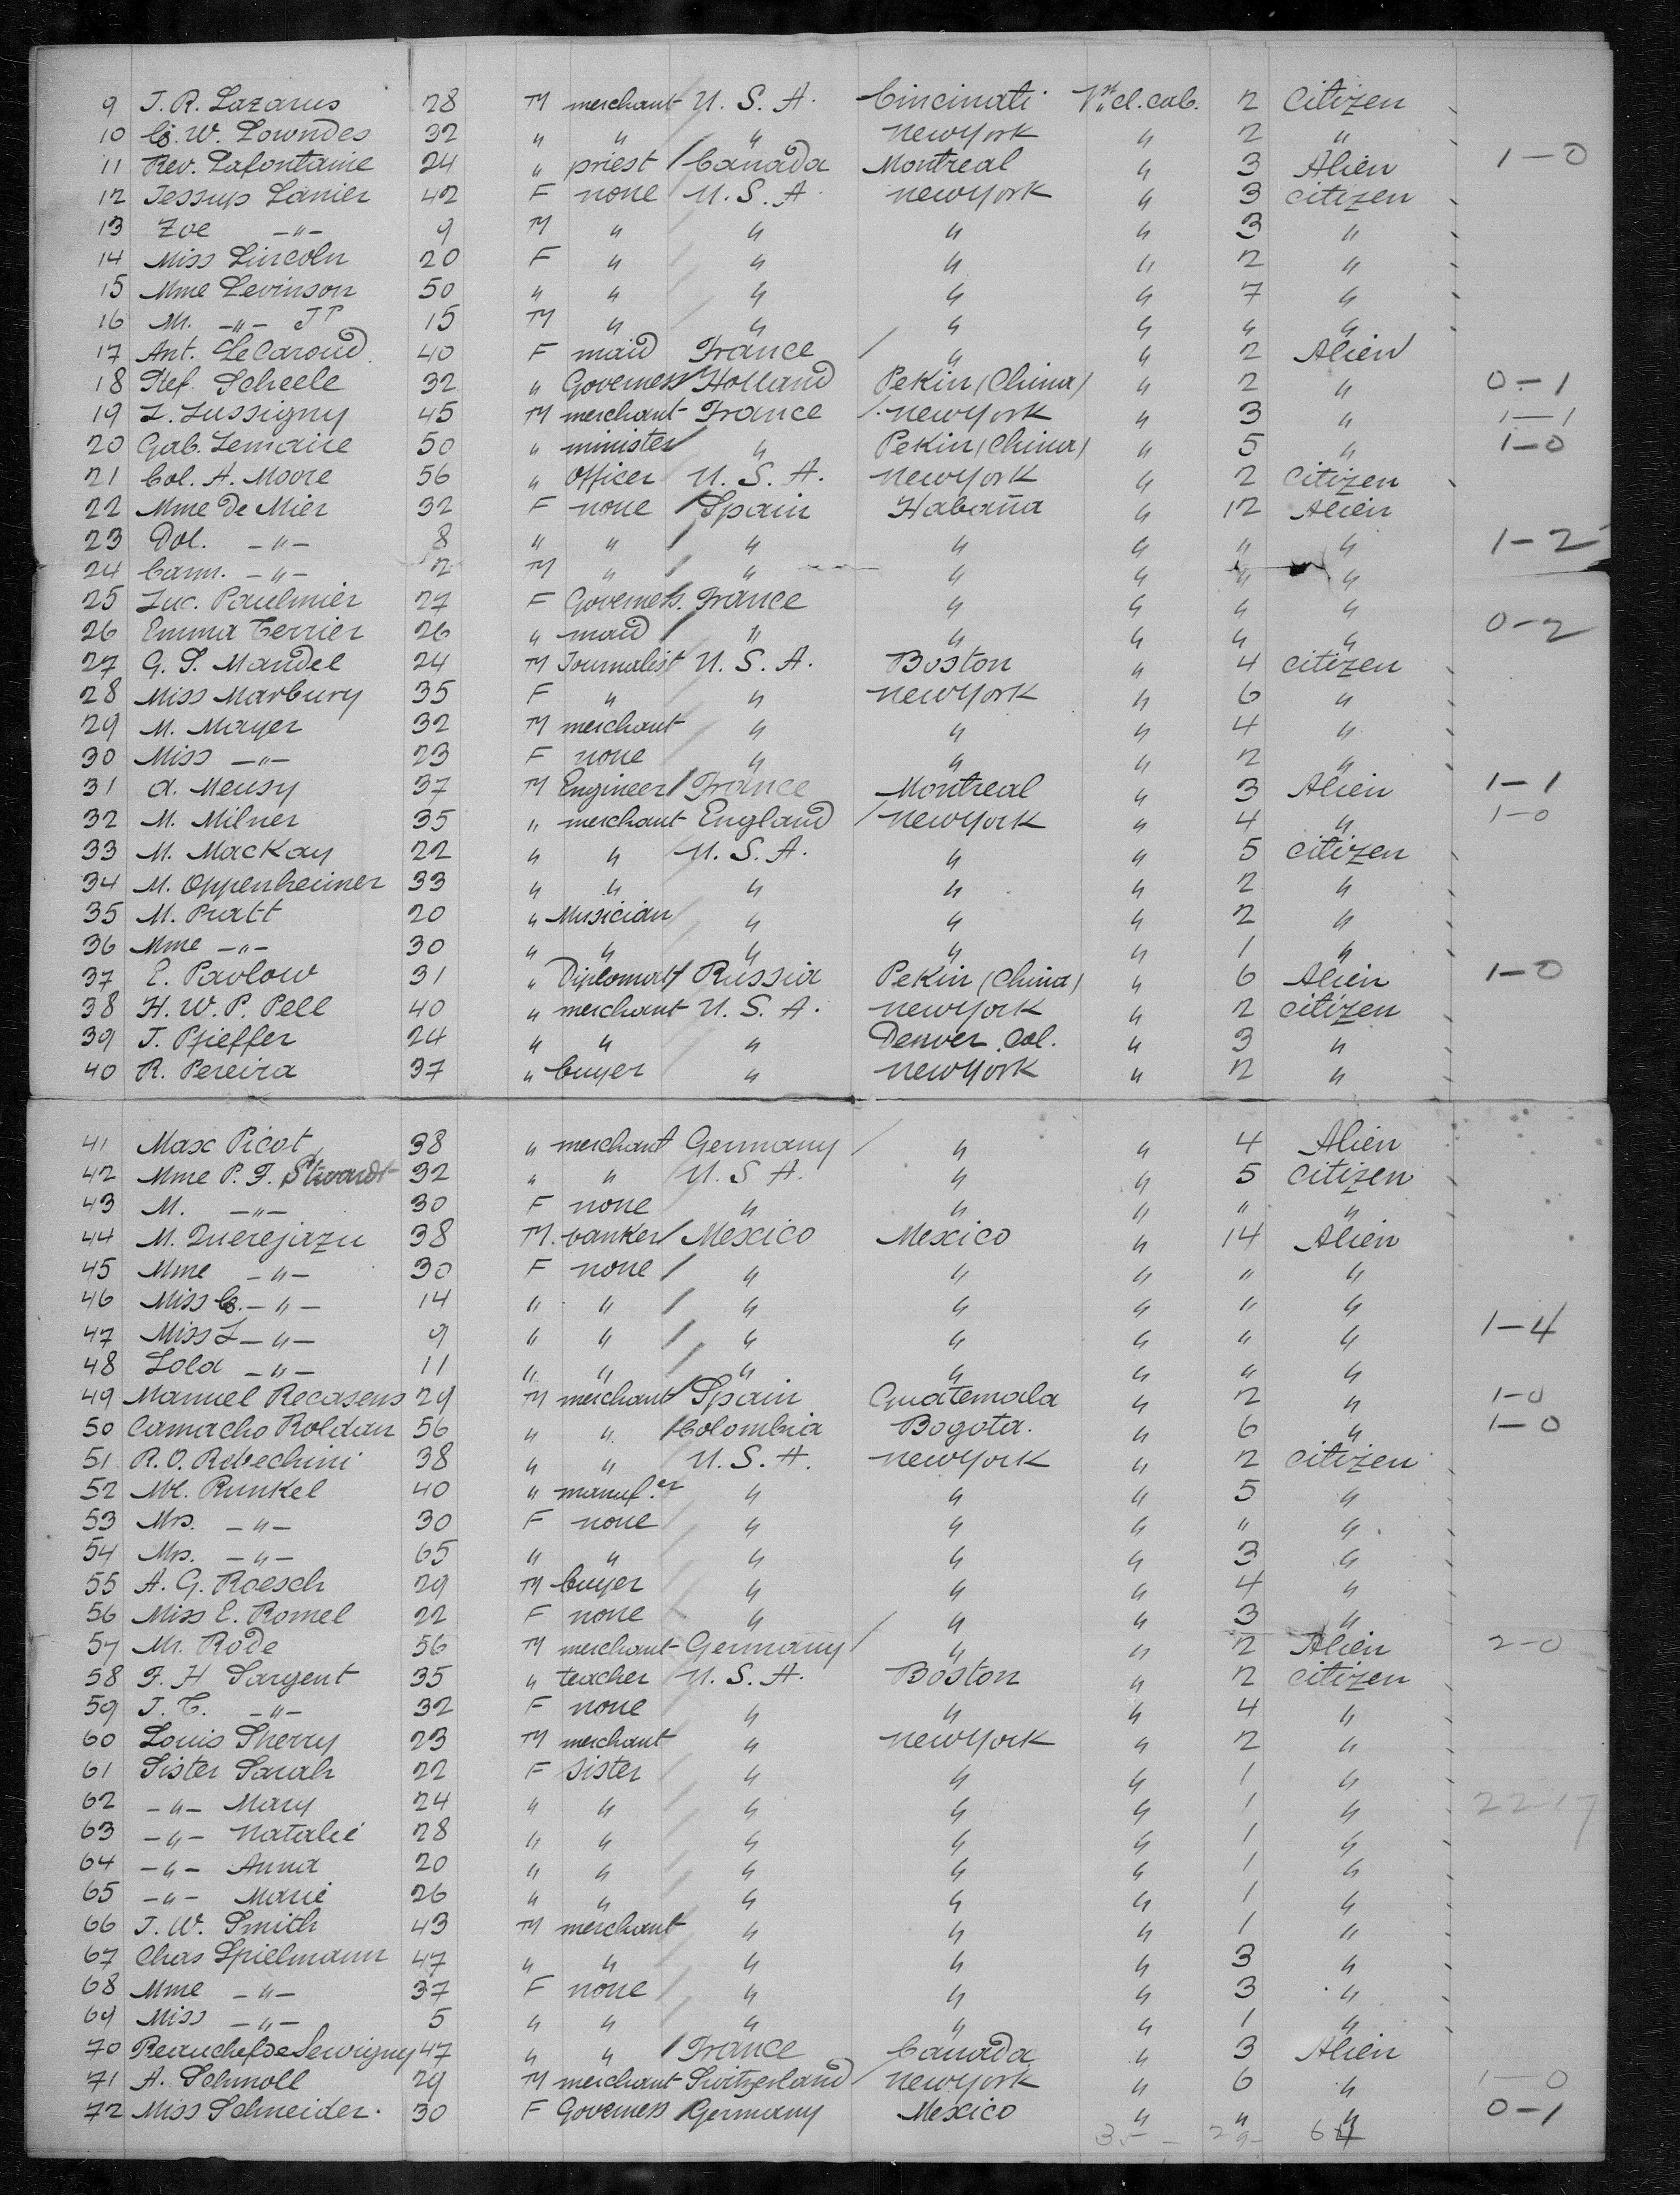 9 J. R. Lazarus 28 M merchant U. S. A. Cincinati 1st cl. cab. 2 Citizen
10 C. W. Lowndes 32 " " " New York " 2 "
11 Rev. Lafontaine 24 " priest Canada Montreal " 3 Alien 1-0
12 Jessup Lanier 42 F none U. S. A New York " 3 citizen
13 Zoe -"- 9 M " " " " 3 "
14 Miss Lincoln 20 F " " " " 2 "
15 Mme Levinson 50 " " " " " 7 "
16 M. -"- Jr 15 M " " " " " "
17 Ant. LeCaroud 40 F maid France " " 2 Alien
18 Stef. Scheele 32 " Governess Holland Pekin (China) " 2 " 0-1
19 L. Lussigny 45 M merchant France New York " 3 " 1-1
20 Gab. Lemaire 50 " minister " Pekin (China) " 5 " 1-0
21 Col. A. Moore 56 " Officer U. S. A. New York " 2 Citizen
22 Mme De Mier 32 F none Spain Habaña " 12 Alien
23 Dol. -"- 8 " " " " " " " 1-2
24 Carm. -"- 2 M " " " " " "
25 Luc. Paulmier 27 F Governess. France " " " "
26 Emma Terrier 26 " maid " " " " " 0-2
27 G. S. Mandel 24 M Journalist U. S. A. Boston " 4 citizen
28 Miss Marbury 35 F " " New York " 6 "
29 M. Mayer 32 M merchant " " " 4 "
30 Miss -"- 23 F none " " " 2 "
31 A. Meusy 37 M Engineer France Montreal " 3 Alien 1-1
32 M. Milner 35 " merchant England New York " 4 " 1-0
33 M. MacKay 22 " " U. S. A. " " 5 citizen
34 M. Oppenheimer 33 " " " " " 2 "
35 M. Pratt 20 " Musician " " " 2 "
36 Mme -"- 30 " " " " " 1 "
37 E. Pavlow 31 " Diplomat Russia Pekin (China) " 6 Alien 1-0
38 H. W. P. Pell 40 " merchant U. S. A. New York " 2 citizen
39 J. Pfieffer 24 " " " Denver Col. " 3 "
40 R. Pereira 37 " buyer " New York " 2 "
41 Max Picot 38 " merchant Germany " " 4 Alien
42 Mme P. F. 32 " " U. S A. " " 5 Citizen
43 M. -"- 30 F none " " " " "
44 M. Querejazu 38 M. banker Mexico Mexico " 14 Alien
45 Mme -"- 30 F none " " " " "
46 Miss C. -"- 14 " " " " " " "
47 Miss L -"- 9 " " " " " " " 1-4
48 Lola -"- 11 " " " " " " "
49 Manuel Recasens 29 M merchant Spain Guatemala " 2 " 1-0
50 Camacho Roldan 56 " " Colombia Bogota. " 6 " 1-0
51 R. O. Rebechini 38 " " U. S. A. New York " 2 citizen
52 Mr. Runkel 40 " manuf.er " " " 5 "
53 Mrs. -"- 30 F none " " " " "
54 Mrs. -"- 65 " " " " " 3 "
55 A. G. Roesch 29 M buyer " " " 4 "
56 Miss E. Romel 22 F none " " " 3 "
57 Mr. Rode 56 M merchant Germany " " 2 Alien 2-0
58 F. H Sargent 35 " teacher U. S. A. Boston " 2 citizen
59 J. C. -"- 32 F none " " " 4 "
60 Louis Sherry 23 M merchant " New York " 2 "
61 Sister Sarah 22 F Sister " " " 1 "
62 -"- Mary 24 " " " " " 1 " 22-17
63 -"- Natalie 28 " " " " " 1 "
64 -"- Anna 20 " " " " " 1 "
65 -"- Marie 26 " " " " " 1 "
66 J. W. Smith 43 M merchant " " " 1 "
67 Chas Spielmann 47 " " " " " 3 "
68 Mme -"- 37 F none " " " 3 "
69 Miss -"- 5 " " " " " 1 "
70 47 " " France Canada " 3 Alien
71 A. Schmoll 29 M merchant Switzerland New York " 6 " 1-0
72 Miss Schneider. 30 F Governess Germany Mexico " " " 0-1